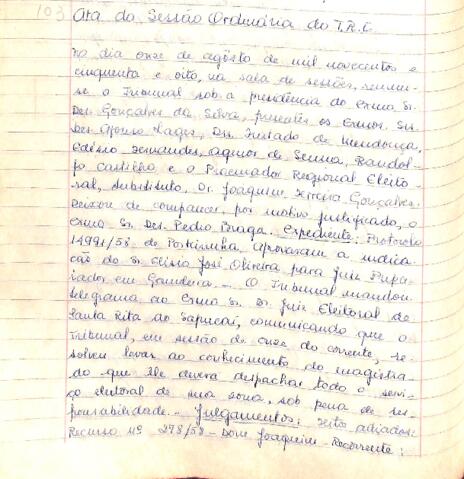 103
Ata da Sessão Ordinária do T.R.E.
No dia onze de agôsto de mil novecentos e
cinquenta e oito, na sala de sessões, reuniu-
se o Tribunal sob a presidência do Exmo Sr.
Des. Gonçalves da Silva, presentes os Exmos. Srs.
Des. Afonso Lages, Drs. Furtado de Mendonça,
Edésio Fernandes, Agenor de Senna, Randol-
fo Castilho e o Procurador Regional Eleito-
ral, substituto, Dr. Joaquim Ferreira Gonçalves.
Deixou de comparecer, por motivo justificado, o
Exmo Sr. Des. Pedro Braga. Expediente: Protocolo
14991/58, de Porteirinha. Aprovaram a indica-
ção do Sr. Elísio José Oliveira para Juiz Prepa-
rador em . O Tribunal mandou
telegrama ao Exmo Sr. Dr. Juiz Eleitoral de
Santa Rita do Sapucaí, comunicando que o
Tribunal, em sessão de onze do corrente, re-
solveu levar ao conhecimento do magistra-
do que ele devera despachar todo o servi-
ço eleitoral de sua zona, sob pena de res-
ponsabilidade. - Julgamentos: feitos adiados:
Recurso Nº 278/58 - Dom Joaquim - Recorrente: